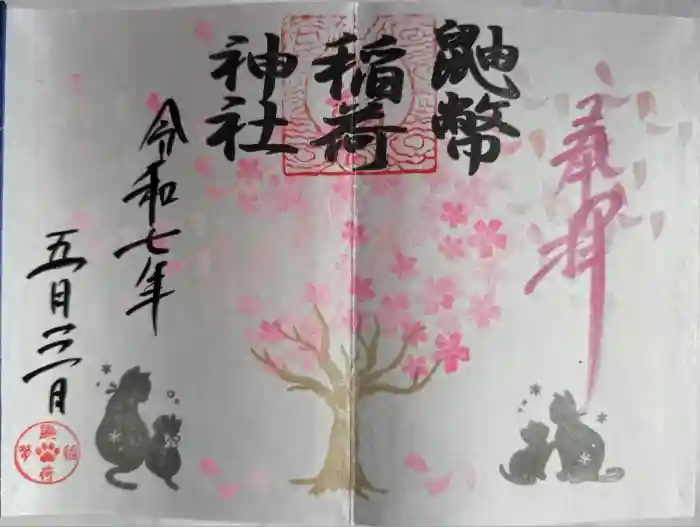 奉拝
鼬幣
稲荷
神社
令和七年
五月 日
鼬幣稲荷